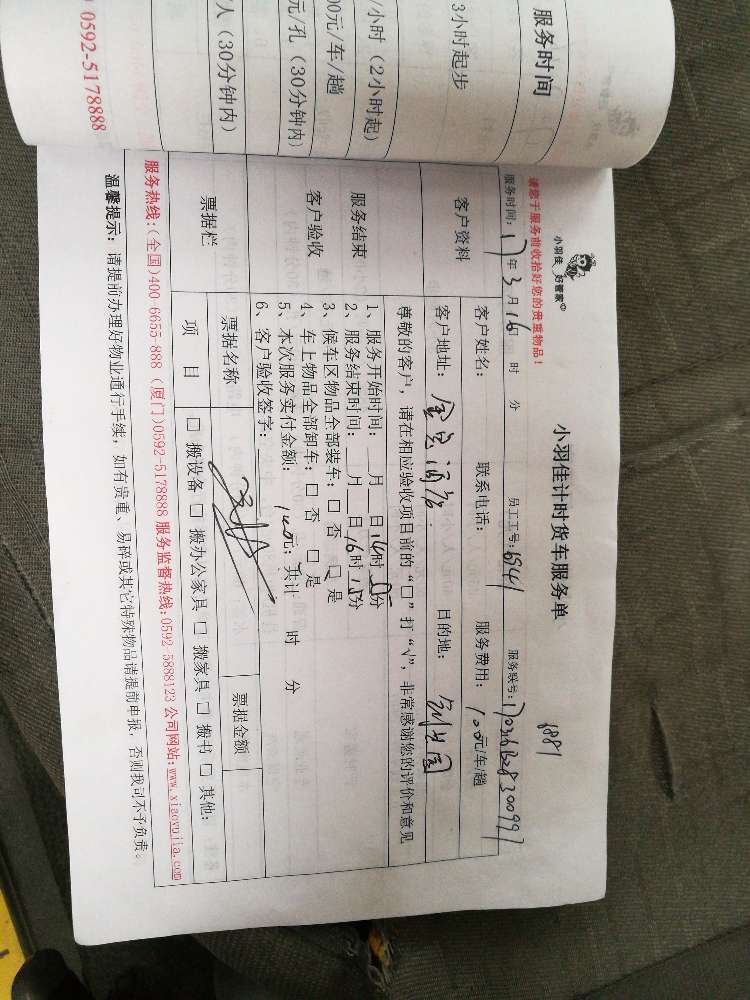 服务时间
3小时起步
/小时（2小时起）
00元/车/趟
元/孔（30分钟内）
人（30分钟内）
0592-5178888
小羽佳 好管家©
小羽佳计时货车服务单
8881
请您于服务前收拾好您的贵重物品！
服务时间：17年3月16 时 分 员工工号：6941 服务联号：
客户资料
客户姓名： 联系电话： 服务费用：100元/车/趟
客户地址： 目的地：
服务结束
客户验收
尊敬的客户，请在相应验收项目前的“□”打“√”，非常感谢您的评价和意见
1、服务开始时间：__月__日14时 分
2、服务结束时间：__月__日16时15分
3、候车区物品全部装车：□ 否 □ 是
4、车上物品全部卸车：□ 否 □ 是
5、本次服务实付金额：100元；共计 时 分
6、客户验收签字：
票据栏
票据名称 票据金额
项 目 □ 搬设备 □ 搬办公家具 □ 搬家具 □ 搬书 □ 其他：
服务热线：(全国)400-6655-888 (厦门)0592-5178888 服务监督热线：0592-5888123 公司网站：www.xiaoyujia.com
温馨提示：请提前办理好物业通行手续，如有贵重、易碎或其它特殊物品请提前申报，否则我司不予负责。